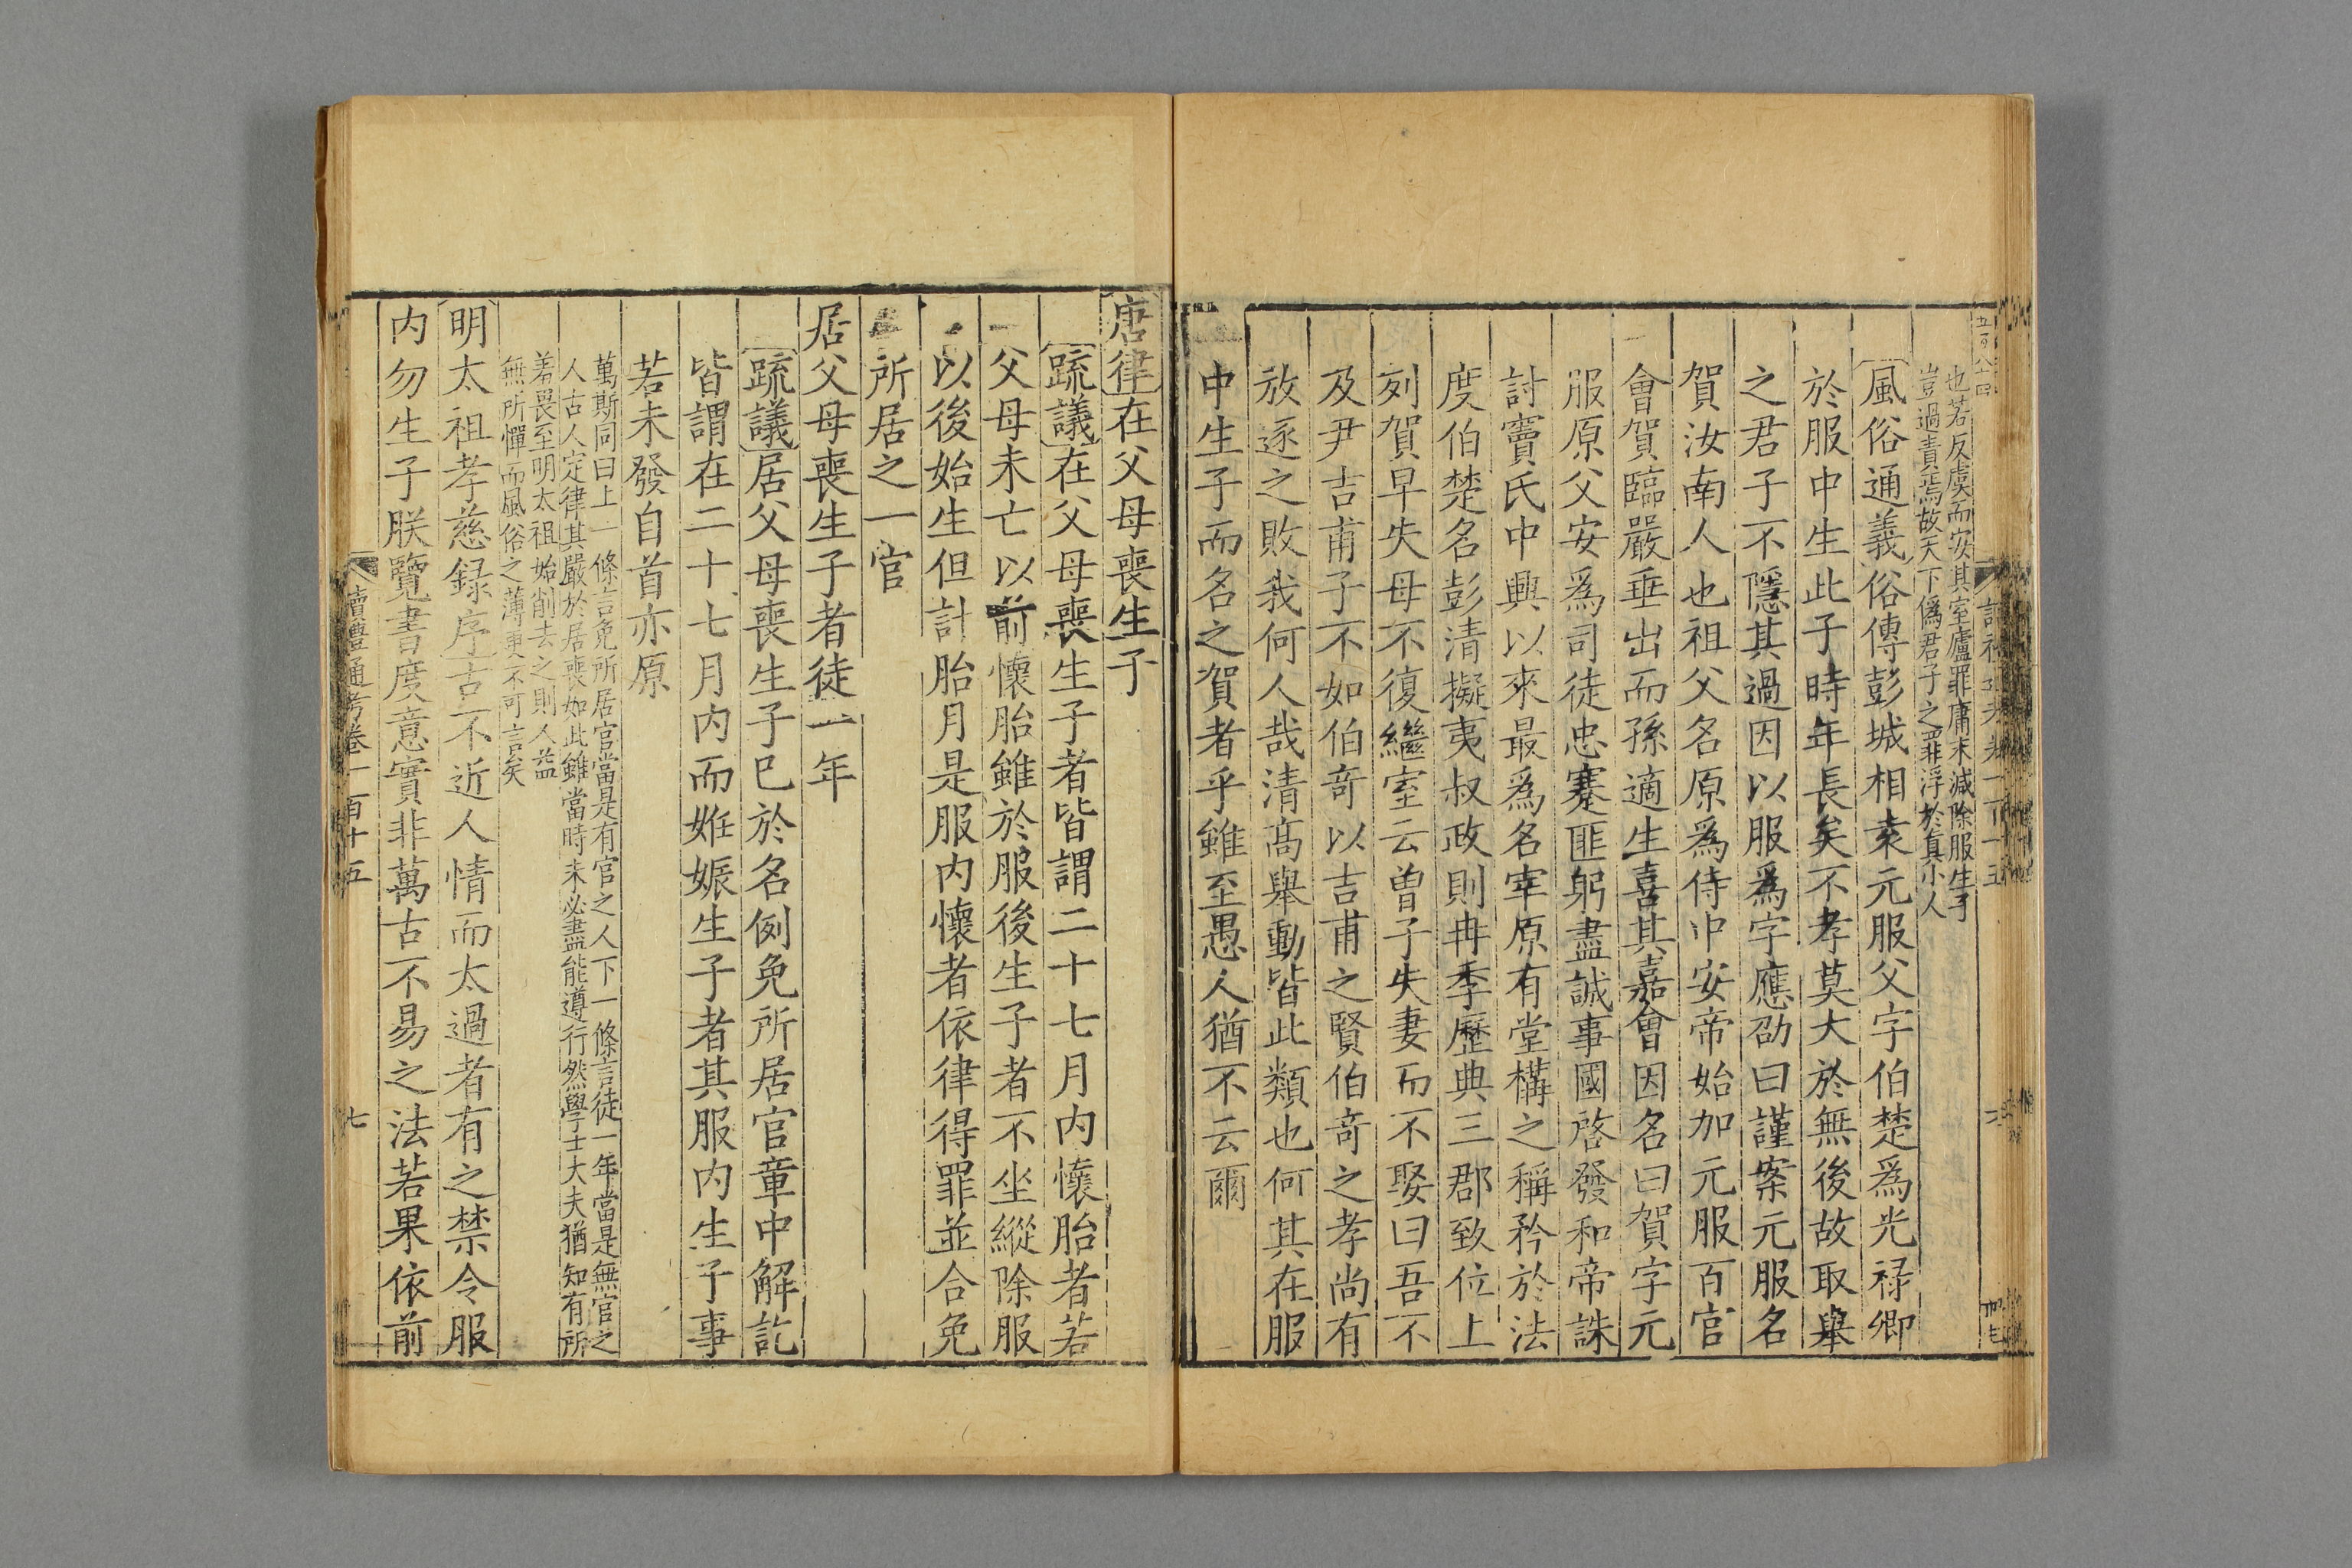 也若反虞而安其室廬罪庸末減除服生子
豈過責焉故天下僞君子之罪浮於真小人
風俗通義俗傳彭城相袁元服父字伯楚爲光禄卿
於服中生此子時年長矣不孝莫大於無後故取舉
之君子不隱其過因以服爲字應劭曰謹案元服名
賀汝南人也祖父名原爲侍中安帝始加元服百官
會賀臨嚴垂出而孫適生喜其嘉會因名曰賀字元
服原父安爲司徒忠蹇匪躬盡誠事國啓發和帝誅
討竇氏中興以來最爲名宰原有堂構之稱矜於法
度伯楚名彭清擬夷叔政則冉季歷典三郡致位上
列賀早失母不復繼室云曾子失妻而不娶曰吾不
及尹吉甫子不如伯奇以吉甫之賢伯奇之孝尚有
放逐之敗我何人哉清高舉動皆此類也何其在服
中生子而名之賀者乎雖至愚人猶不云爾
唐律在父母喪生子
疏議在父母喪生子者皆謂二十七月内懷胎者若
父母未亡以前懷胎雖於服後生子者不坐縱除服
以後始生但計胎月是服内懷者依律得罪並合免
所居之一官
居父母喪生子者徒一年
疏議居父母喪生子已於名例免所居官章中解訖
皆謂在二十七月内而姙娠生子者其服内生子事
若未發自首亦原
萬斯同曰上一條言免所居官當是有官之人下一條言徒一年當是無官之
人古人定律其嚴於居喪如此雖當時未必盡能遵行然學士大夫猶知有所
羞畏至明太祖始削去之則人益
無所憚而風俗之薄更不可言矣
明太祖孝慈録序古不近人情而太過者有之禁令服
内勿生子朕覽書度意實非萬古不易之法若果依前
讀禮通考卷一百十五
七